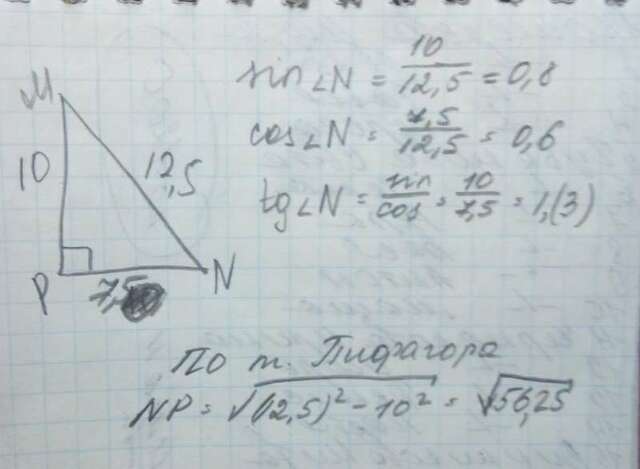 M
10
12,5
P
7,5
N
sin∠N = 10/12,5 = 0,8
cos∠N = 7,5/12,5 = 0,6
tg∠N = sin/cos = 10/7,5 = 1,(3)
По т. Пифагора
NP = √(12,5)² - 10² = √56,25